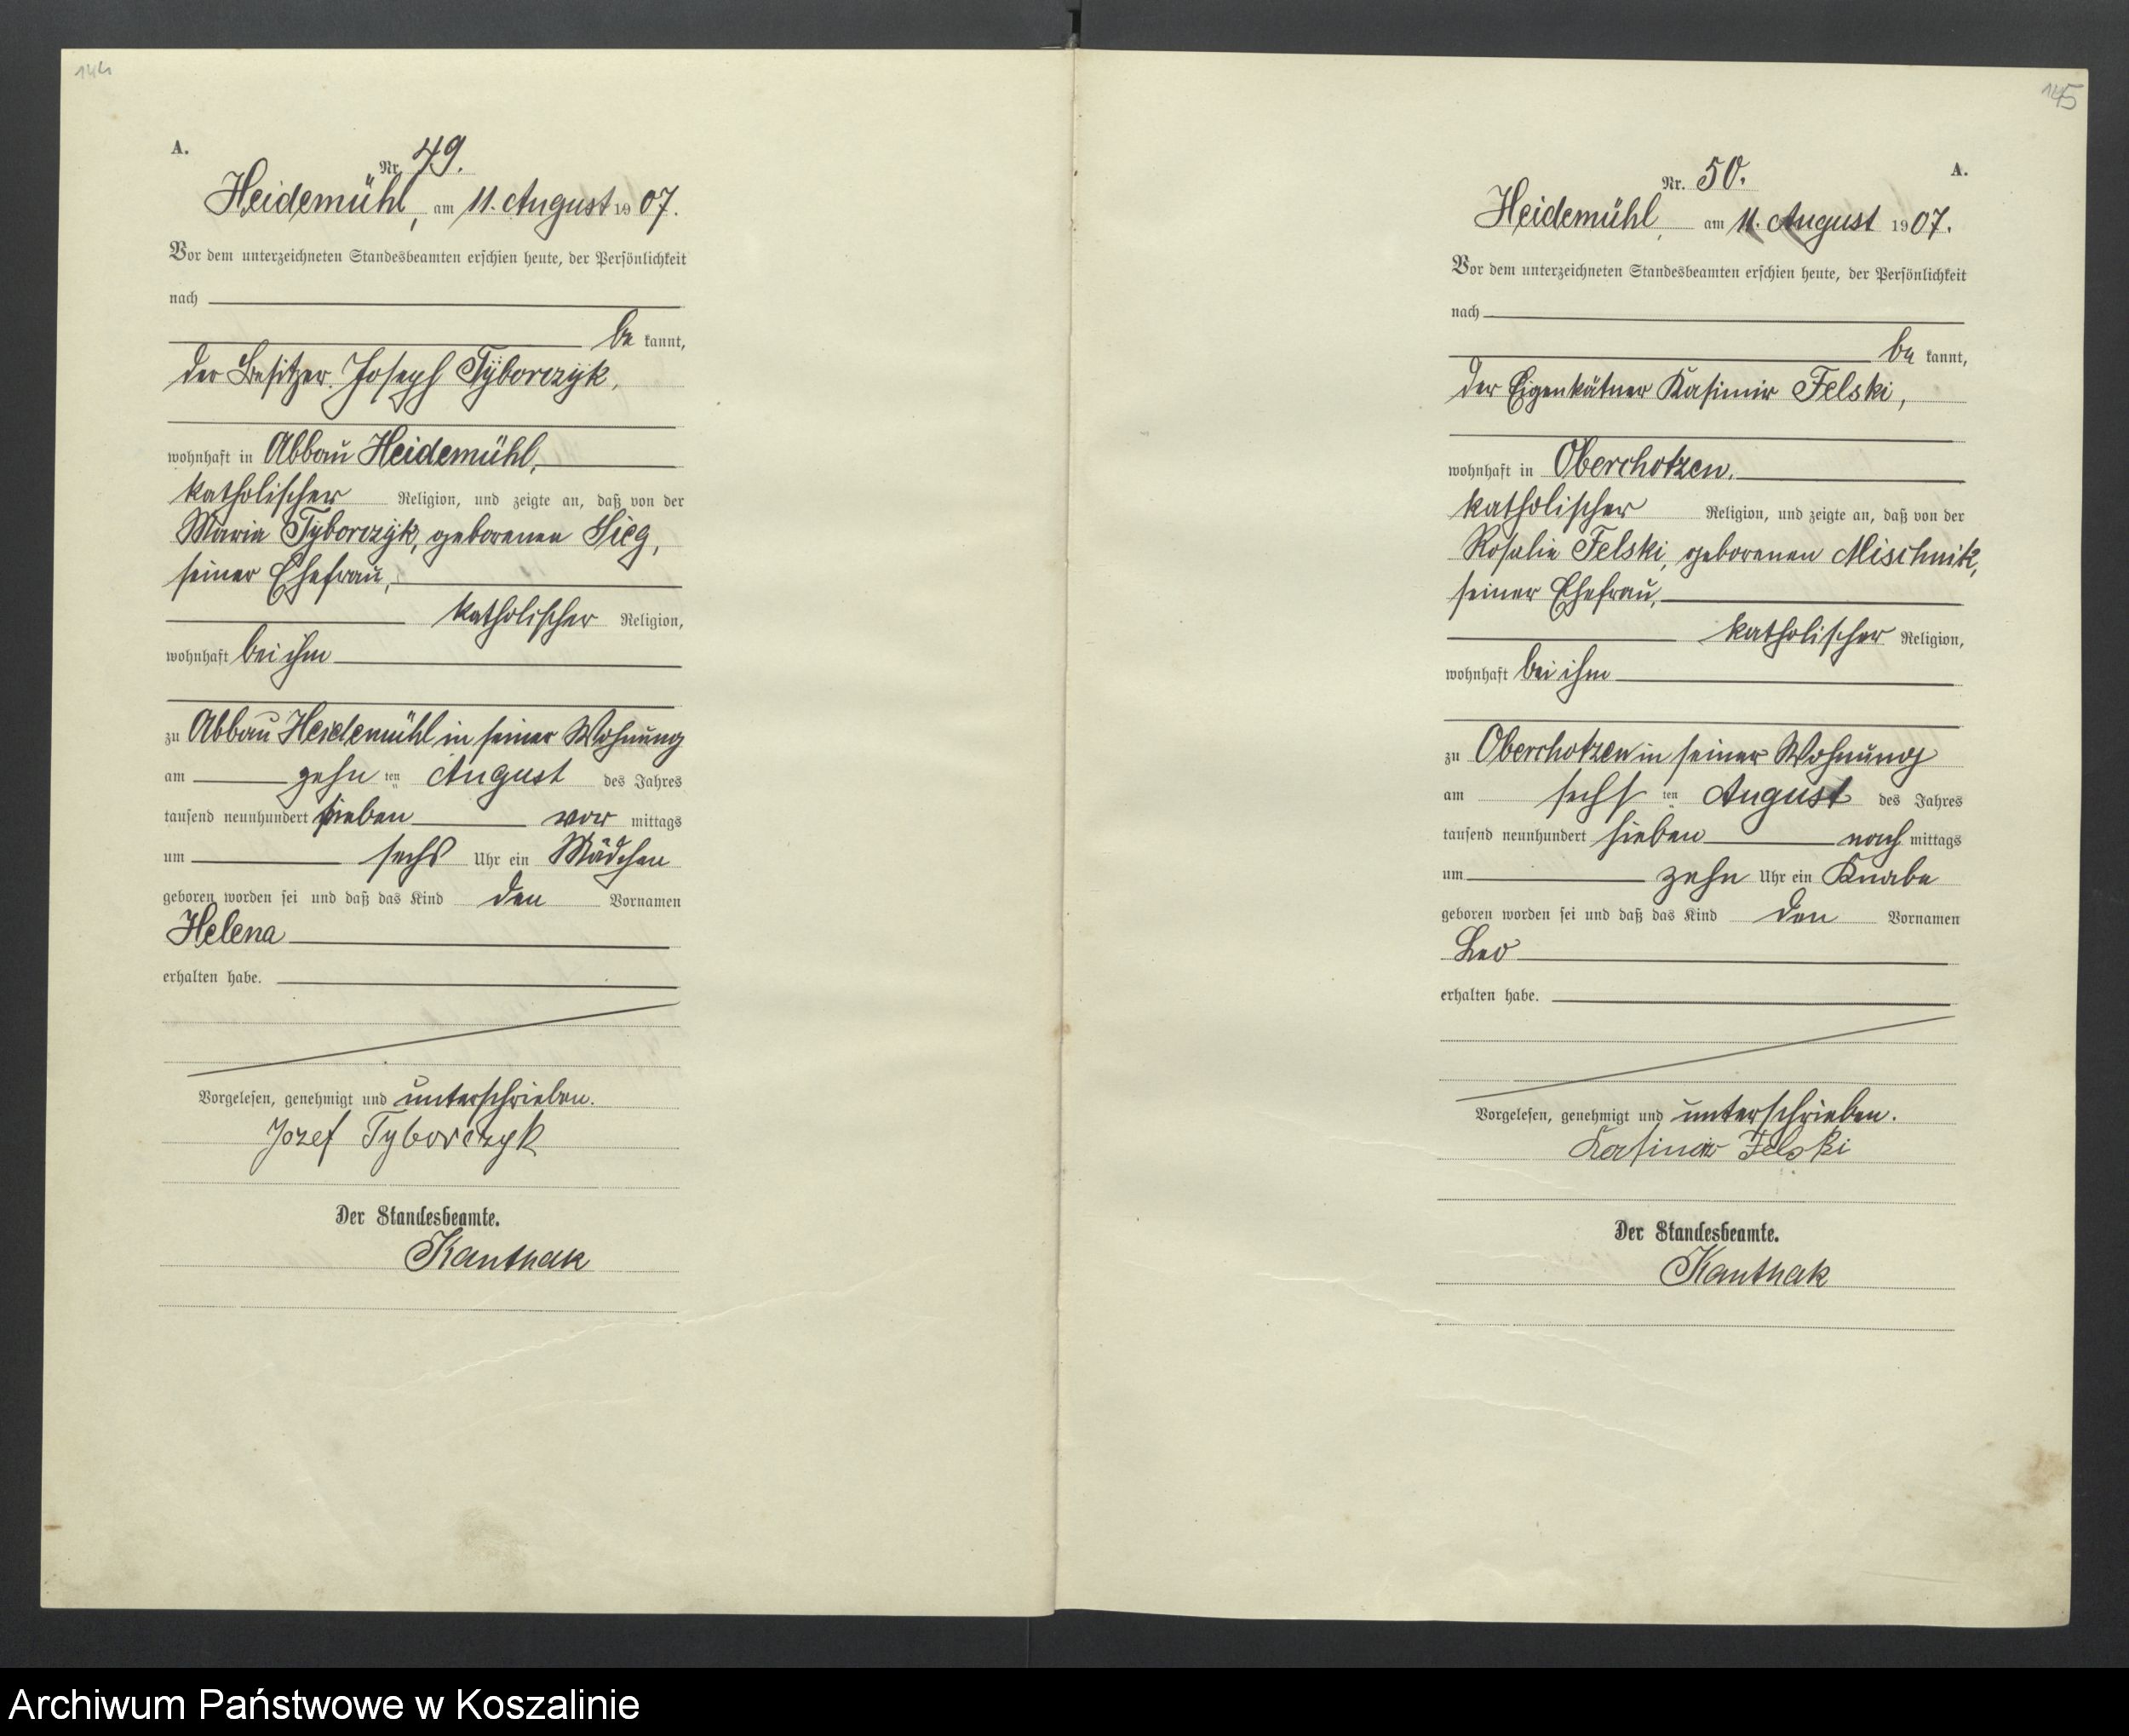 144
A.
Nr. 49.
Heidemühl, am 11. August 1907.
Vor dem unterzeichneten Standesbeamten erschien heute, der Persönlichkeit
nach
be kannt,
der Besitzer Joseph Tyborczyk,
wohnhaft in Abbau Heidemühl,
katholischer Religion, und zeigte an, daß von der
Maria Tyborczyk, geborenen Sieg,
seiner Ehefrau,
katholischer Religion,
wohnhaft bei ihm
zu Abbau Heidemühl in seiner Wohnung
am zehn ten August des Jahres
tausend neunhundert sieben vor mittags
um sechs Uhr ein Mädchen
geboren worden sei und daß das Kind den Vornamen
Helena
erhalten habe.
Vorgelesen, genehmigt und unterschrieben.
Jozef Tyborczyk
Der Standesbeamte.
Kanthak
145
A.
Nr. 50.
Heidemühl, am 11. August 1907.
Vor dem unterzeichneten Standesbeamten erschien heute, der Persönlichkeit
nach
be kannt,
der Eigenkätner Kasimir Felski,
wohnhaft in Oberchotzen,
katholischer Religion, und zeigte an, daß von der
Rosalie Felski, geborenen Mischnik,
seiner Ehefrau,
katholischer Religion,
wohnhaft bei ihm
zu Oberchotzen in seiner Wohnung
am sechs ten August des Jahres
tausend neunhundert sieben nach mittags
um zehn Uhr ein Knabe
geboren worden sei und daß das Kind den Vornamen
Leo
erhalten habe.
Vorgelesen, genehmigt und unterschrieben.
Kasimir Felski
Der Standesbeamte.
Kanthak
Archiwum Państwowe w Koszalinie